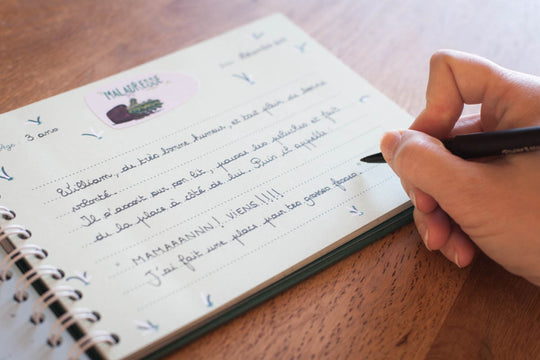 MALADRESSE
Âge : 3 ans
William, de très bonne humeur, et tout plein de bonne
volonté.
Il s'assoit sur son lit, pousse les peluches et fait
de la place à côté de lui. Puis il appelle :
- MAMAAANNN ! VIENS !!!!
J'ai fait une place pour tes grosses fesses.